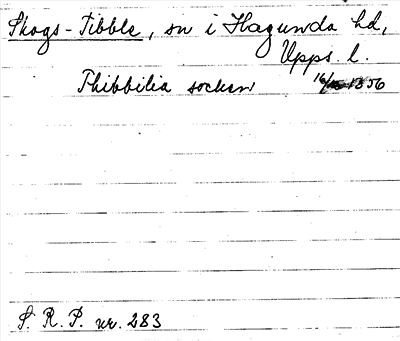 Skogs-Tibble, sn i Hagunda hd,
Upps. l.
Thibbilia sockn 1356
S. R. P. nr. 283